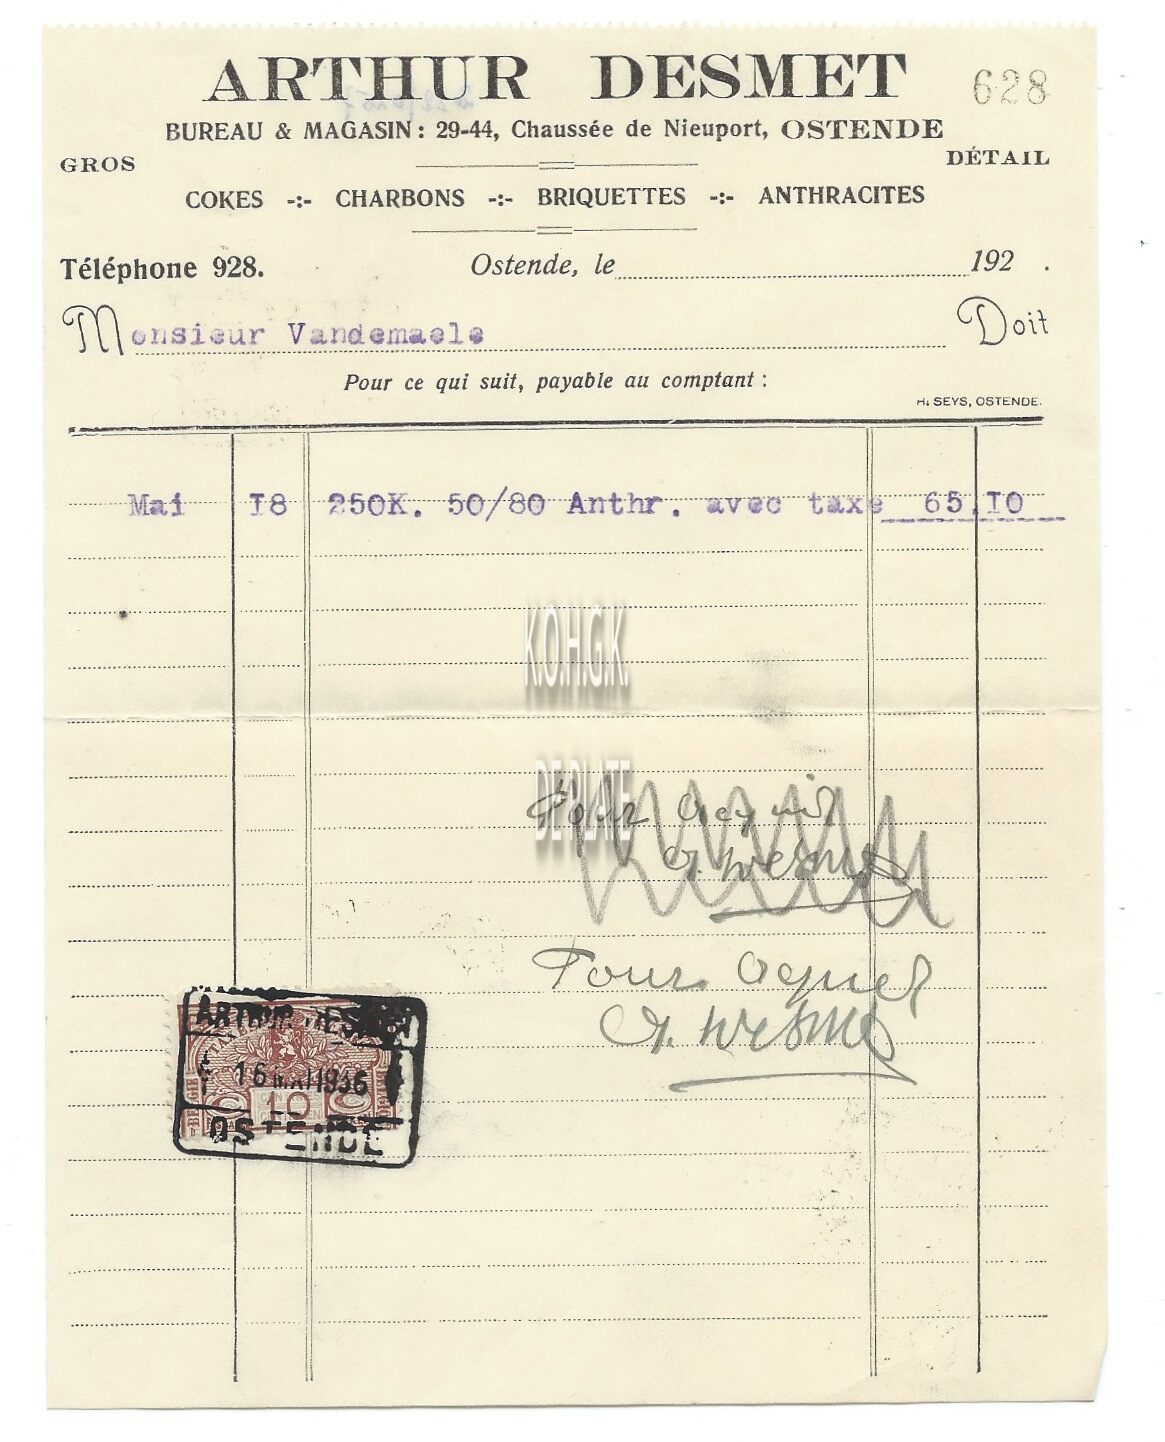 ARTHUR DESMET
628
BUREAU & MAGASIN : 29-44, Chaussée de Nieuport, OSTENDE
GROS
DÉTAIL
COKES -:- CHARBONS -:- BRIQUETTES -:- ANTHRACITES
Téléphone 928.
Ostende, le 192 .
Monsieur Vandemaele
Doit
Pour ce qui suit, payable au comptant :
H. SEYS, OSTENDE.
Mai I8 250K. 50/80 Anthr. avec taxe 65,I0
K.O.H.G.K.
DE PLATE
Pour acquit
A. Desmet
Pour Acquit
A. Desmet
ARTHUR DESMET
16 MAI 1936
BELGIE
10
OSTENDE